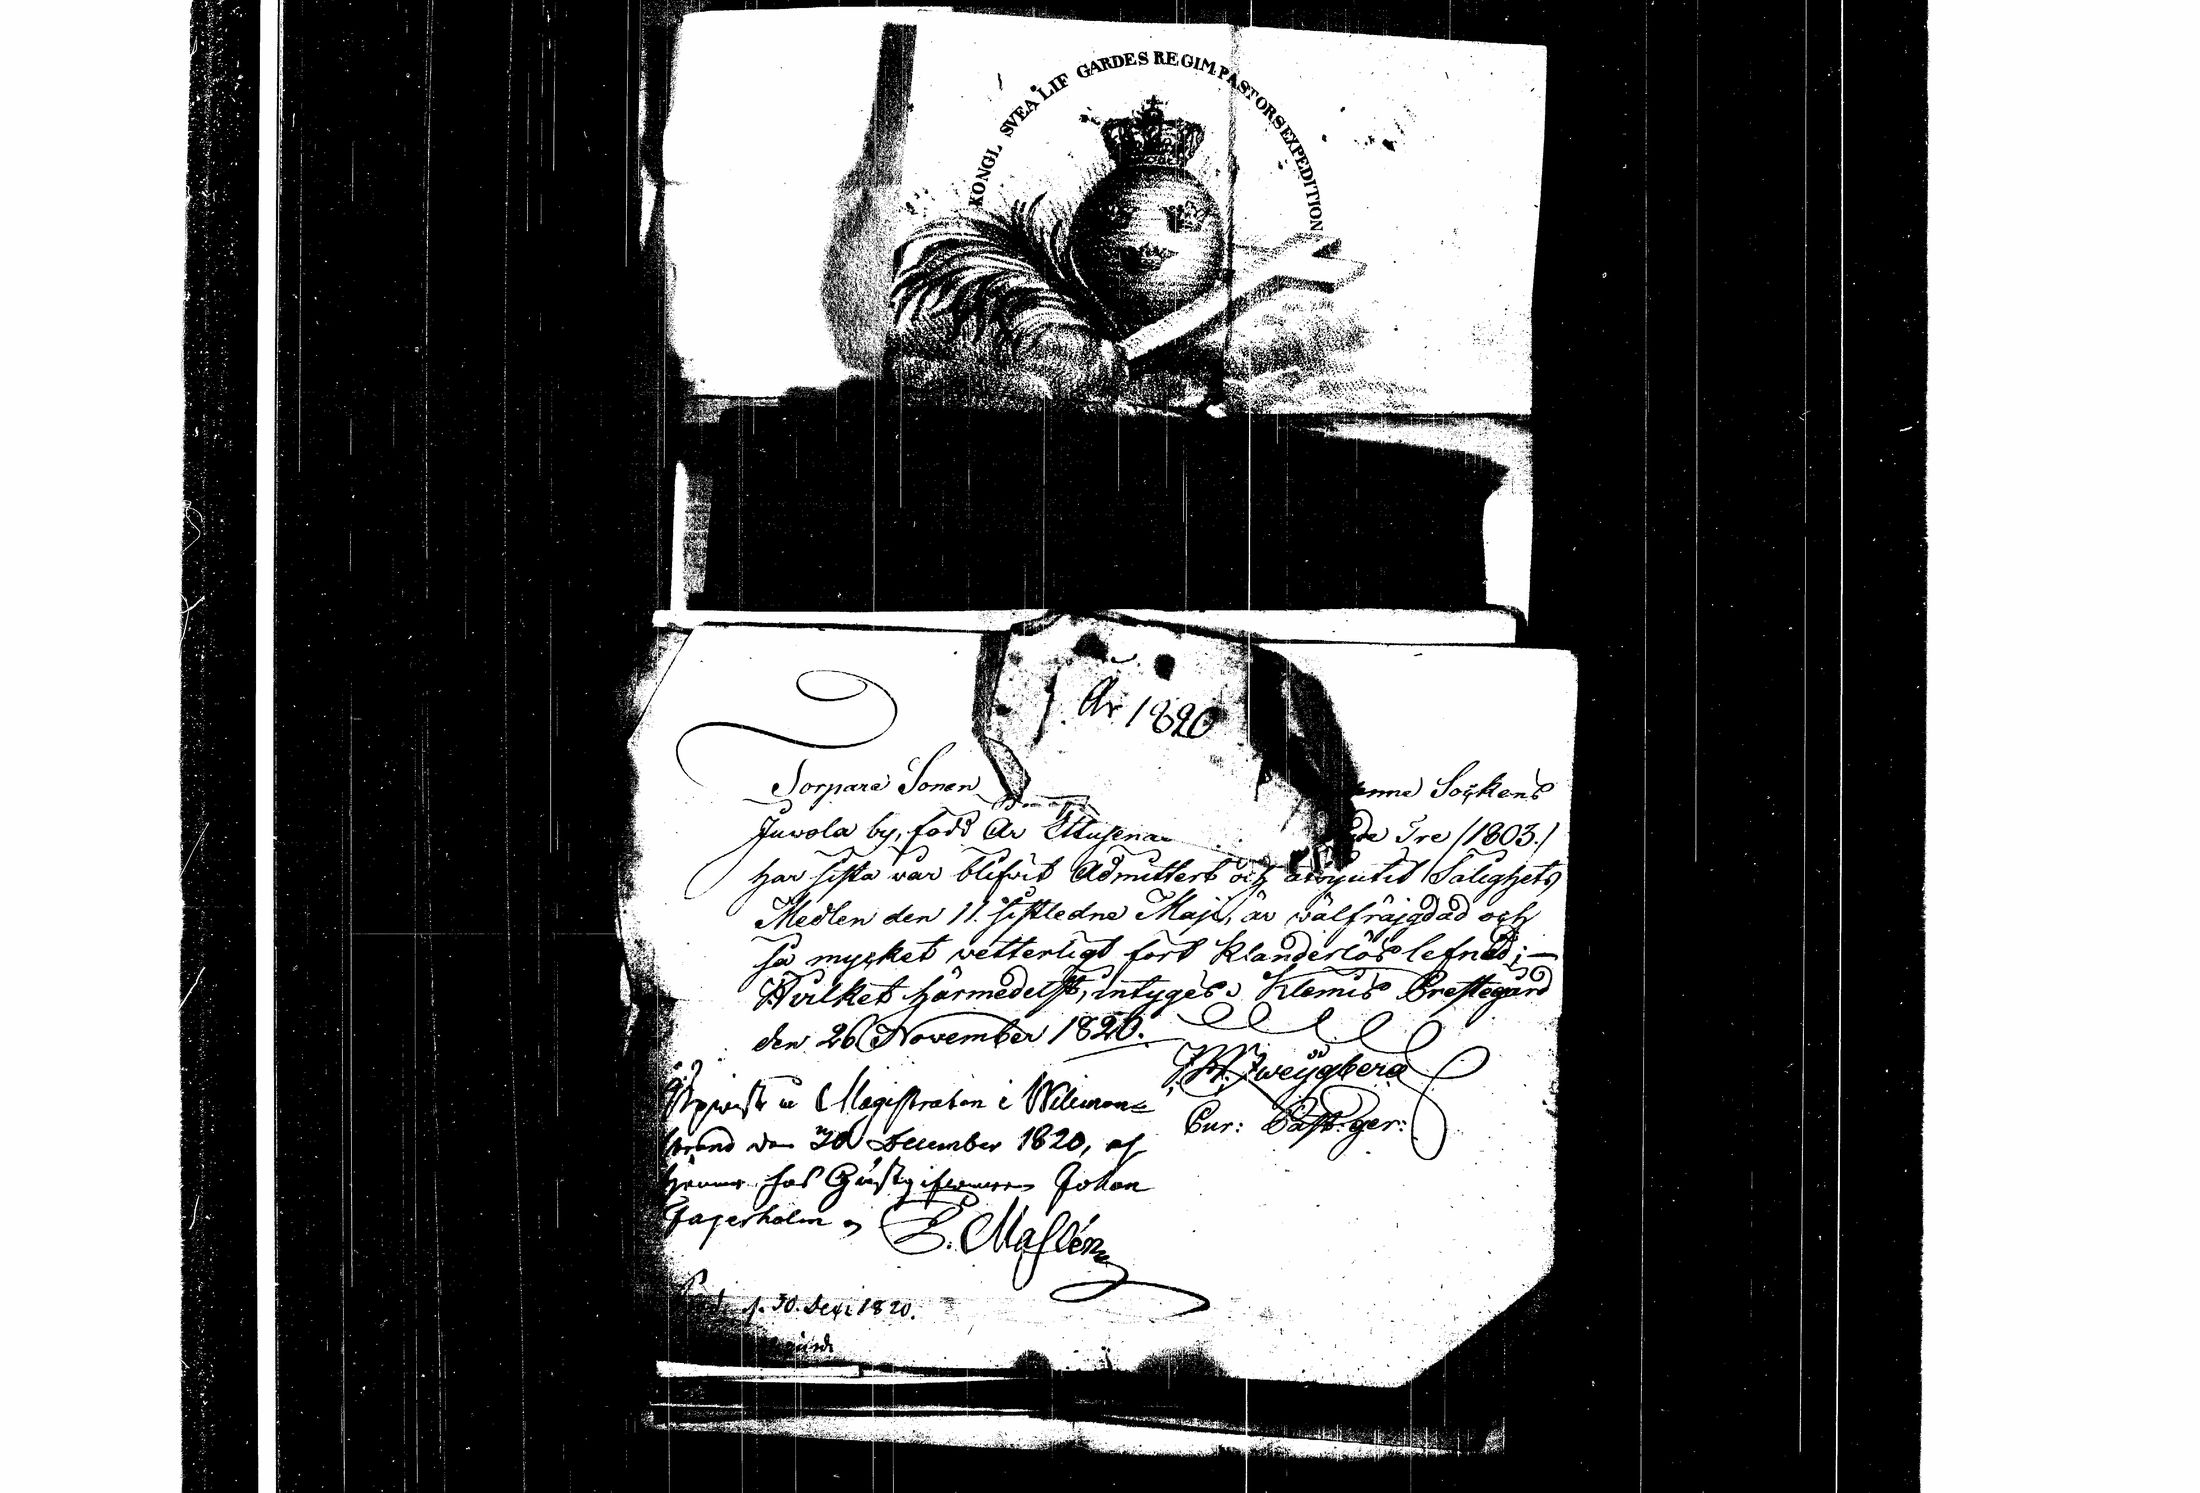 KONGL. SVEA LIF GARDES REGIM PASTORSEXPEDITION
År 1820
Torpare Sonen enne Sockens
Juvola by, född År Ettusena de Tre (1803.)
har sista var blifvit Admittert och åtnjutit Salighets
Medlen den 11. sistledne Maji, är välfräjgdad och
så mycket vetterligt fört klanderlös lefnad; —
Hvilket härmedelst, intygès. Klemis Prestegård
den 26 November 1820.
Zweÿgberg
Cur: Past: ger:
Magistraten i Wilman-
strand den 30 December 1820, af
Gästgifvaren Johan
Fagerholm
E. Maslén
d. 30. Dec: 1820.